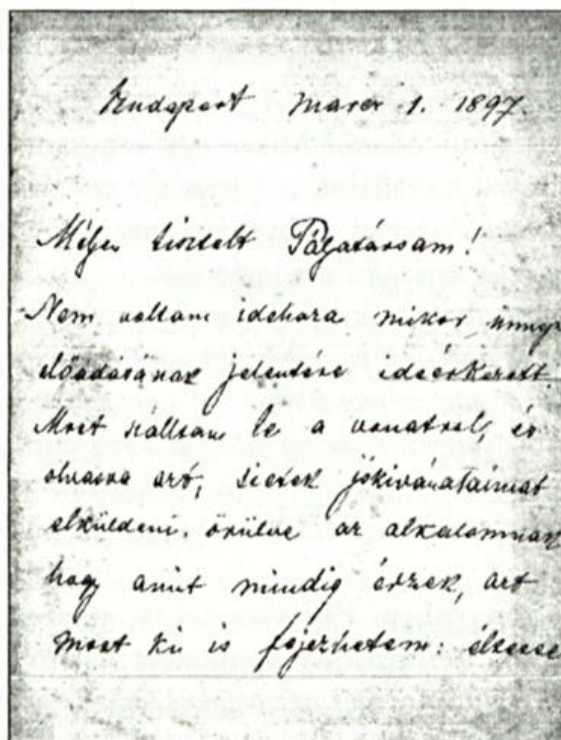 Budapest marcz 1. 1897.
Mélyen tisztelt Pályatársam!
Nem voltam idehaza mikor ünnepi
előadásának jelentése ideérkezett
Most szálltam le a vonatról, és
olvasva azt, sietek jókivánataimat
elküldeni. örülve az alkalomnak
hogy amit mindig érzek, azt
most ki is fejezhetem: